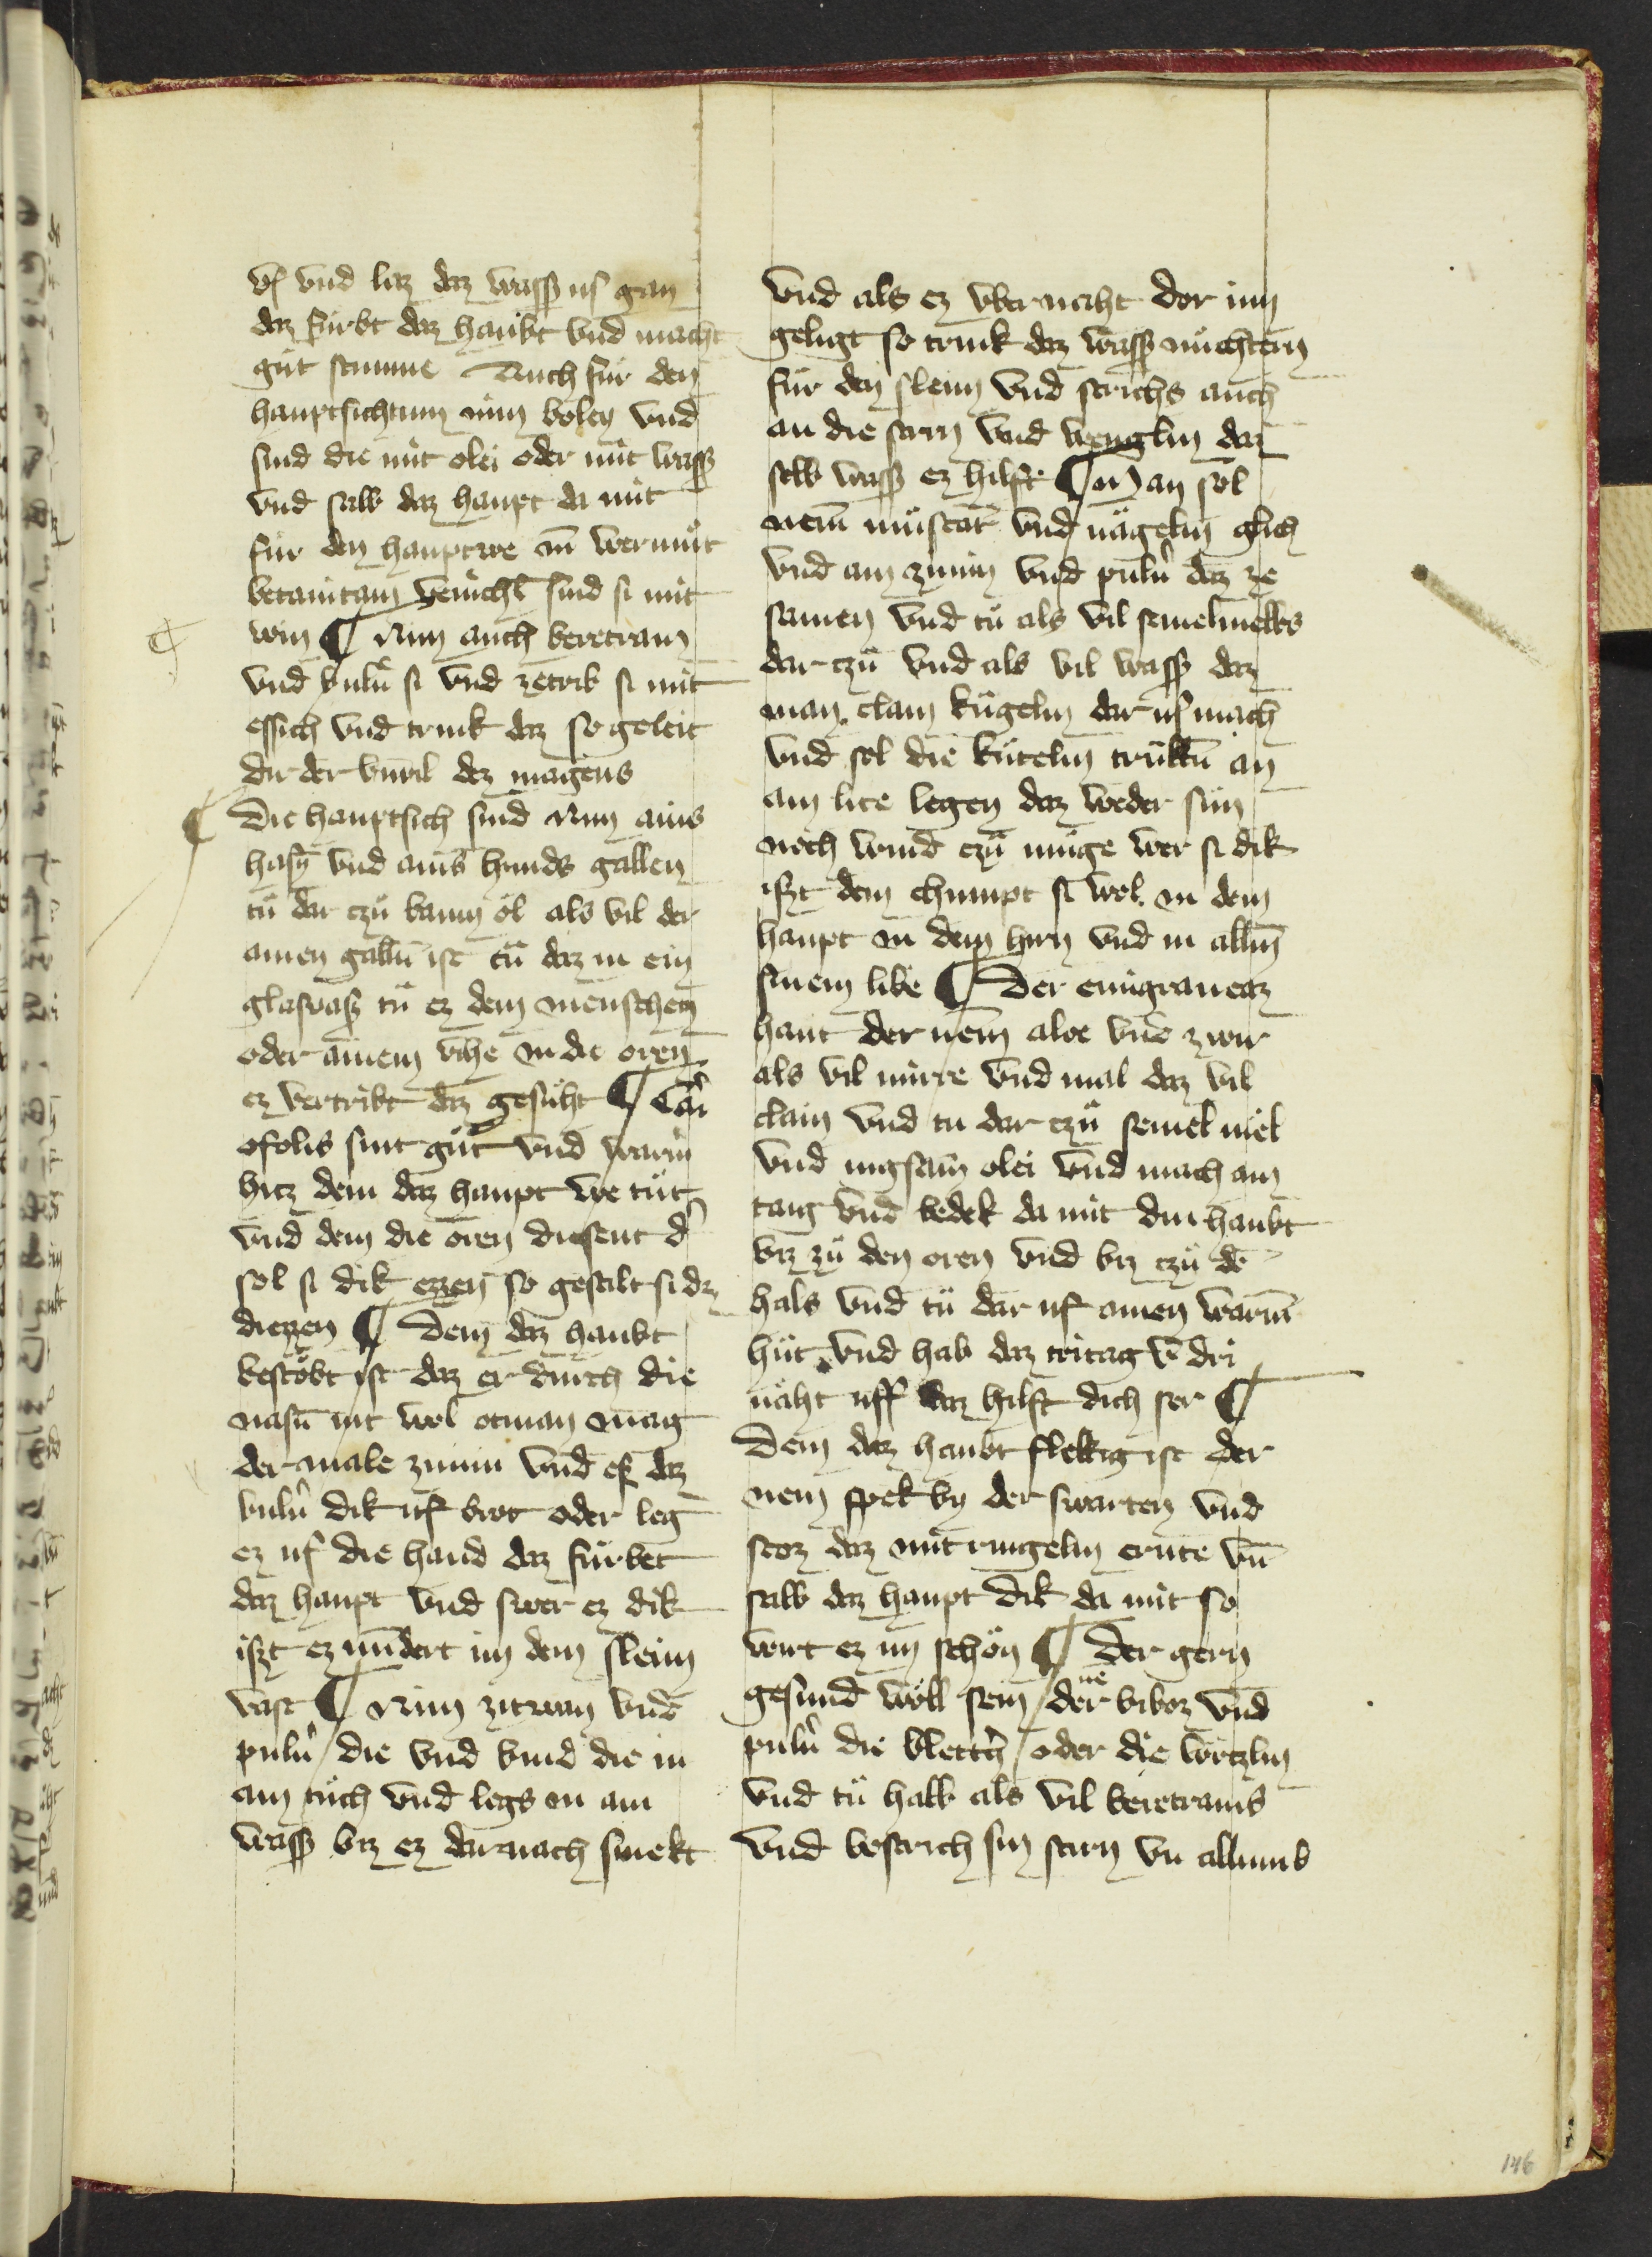 vf vnd laz daz wasß us gan
daz fürbt daz haubt vnd macht
gut stimme Auch für den
hauptsichtum nim boley vnd
sud die mit olei oder mit wasß
vnd salb daz haupt da mit
für den hauptwe nī wermüt
betanicam venichl sud si mit
win ¶ Nim auch beretram
vnd bulū si vnd zetrib si mit
essich vnd trink daz so geleit
dir der vnwil dez magens
¶ Die hauptsich sind Nim ains
hasē vnd ains hunds gallen
tü dar czü bamöl als vil der
ainen gallū ist tü daz in ein
glasvasz tü ez dem menschen
oder ainem vihe in die oren
ez vertribt daz gesüht ¶ Gari
ofolis sint güt vnd warm
hicz dem daz haupt we tüt
vnd dem die oren diesent d̄
sol si dik ezzen so gestilt si daz
diezzen ¶ Dem daz haubt
bestobt ist daz er durch die
nasū nit wol otman mag
der male zimin vnd eß daz
bulū dik uf brot oder leg
ez uf die hand daz fürbet
daz haupt vnd swer ez dik
iszt ez mīdert im dem sleim
vast ¶ Nim zitwan vnd
pulū die vnd bind die in
ain tüch vnd legs in ain
wasß biz ez darnach smekt
vnd als ez vbernaht dor inn
geligt so trink daz wasß nüchtern
für den sleim vnd strichs auch
an die stirn vnd wenglin daz
selb wasß ez hilft ¶ Man sol
nem müscat vnd nägelin glich
vnd ain zimin vnd pulū daz ze
samen vnd tü als vil semelmelbs
dar czü vnd als vil wasß daz
man clain kügelin dar us mach
vnd sol die kütelin trükū an
ain stete legen daz weder sün
noch wind czü müge wer si dik
iszt dem chumpt si wol in dem
haupt in dem hirn vnd in allem
sinem libe ¶ Der emigraneaz
haut der nem aloe vnd zwir
als vil mirre vnd mal daz vil
clain vnd tu dar czü semel mel
vnd ingsam olei vnd mach ain
taig vnd bedek da mit din haubt
biz zü den oren vnd biz czü dē
hals vnd tü dar uf ainen warm
hüt vnd hab daz tritag v̄ dri
näht uff daz hilft dich ser ¶
Dem daz haubt flekkig ist der
nem spek by der swarten vnd
stoz daz mit ringelin crute vn̄
salb daz haupt dik da mit so
wirt ez im schön ¶ Der gern
gesund wöll sein / der nē biboz vnd
pulū die blettr̄ / oder die wirczlin
vnd tü halb als vil beretrams
vnd bestrich sin stirn vn allums
146